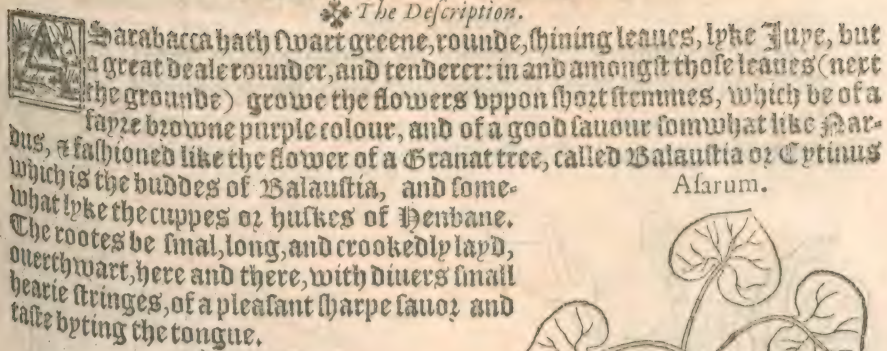 The Deſcription.
ASarabacca hath ſwart greene, rounde, ſhining leaues, lyke Juye, but
a great deale rounder, and tenderer: in and amongſt thoſe leaues (next
the grounde) growe the flowers vppon ſhort ſtemmes, which be of a
fayre browne purple colour, and of a good ſauour ſomwhat like Nar-
dus, & faſhioned like the flower of a Granat tree, called Balauſtia or Cytinus
which is the buddes of Balauſtia, and ſome-
what lyke the cuppes or huſkes of Henbane.
The rootes be ſmal, long, and crookedly layd,
ouerthwart, here and there, with diuers ſmall
hearie ſtringes, of a pleaſant ſharpe ſauor and
taſte byting the tongue.
Aſarum.